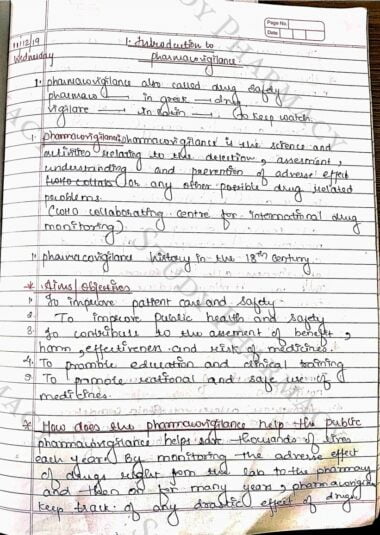 Page No.
Date
11/12/19
Wednesday
1. Introduction to
pharmacovigilance
1. pharmacovigilance also called drug safety
pharmaco → in greek → drug
vigilare → in latin → to keep watch.
1. pharmacovigilance: pharmacovigilance is the science and
activities relating to the detection, assesment,
understanding and prevention of adverse effect
or any other possible drug related
problems.
(WHO collaborating centre for international drug
monitoring)
1. pharmacovigilance history in the 18th century.
* Aims/Objectives
1. To improve patient care and safety.
2. To improve public health and safety
3. To contribute to the assement of benefit,
harm, effectiveness and risk of medicines.
4. To promote education and clinical training
5. To promote rational and safe use of
medicines.
* How does the pharmacovigilance help the public
pharmacovigilance helps save thousands of lives
each year. By monitoring the adverse effect
of drugs right from the lab to the pharmacy
and then on for many years, pharmacovigilance
keep track of any drastic effect of drugs
STUDY PHARMACY